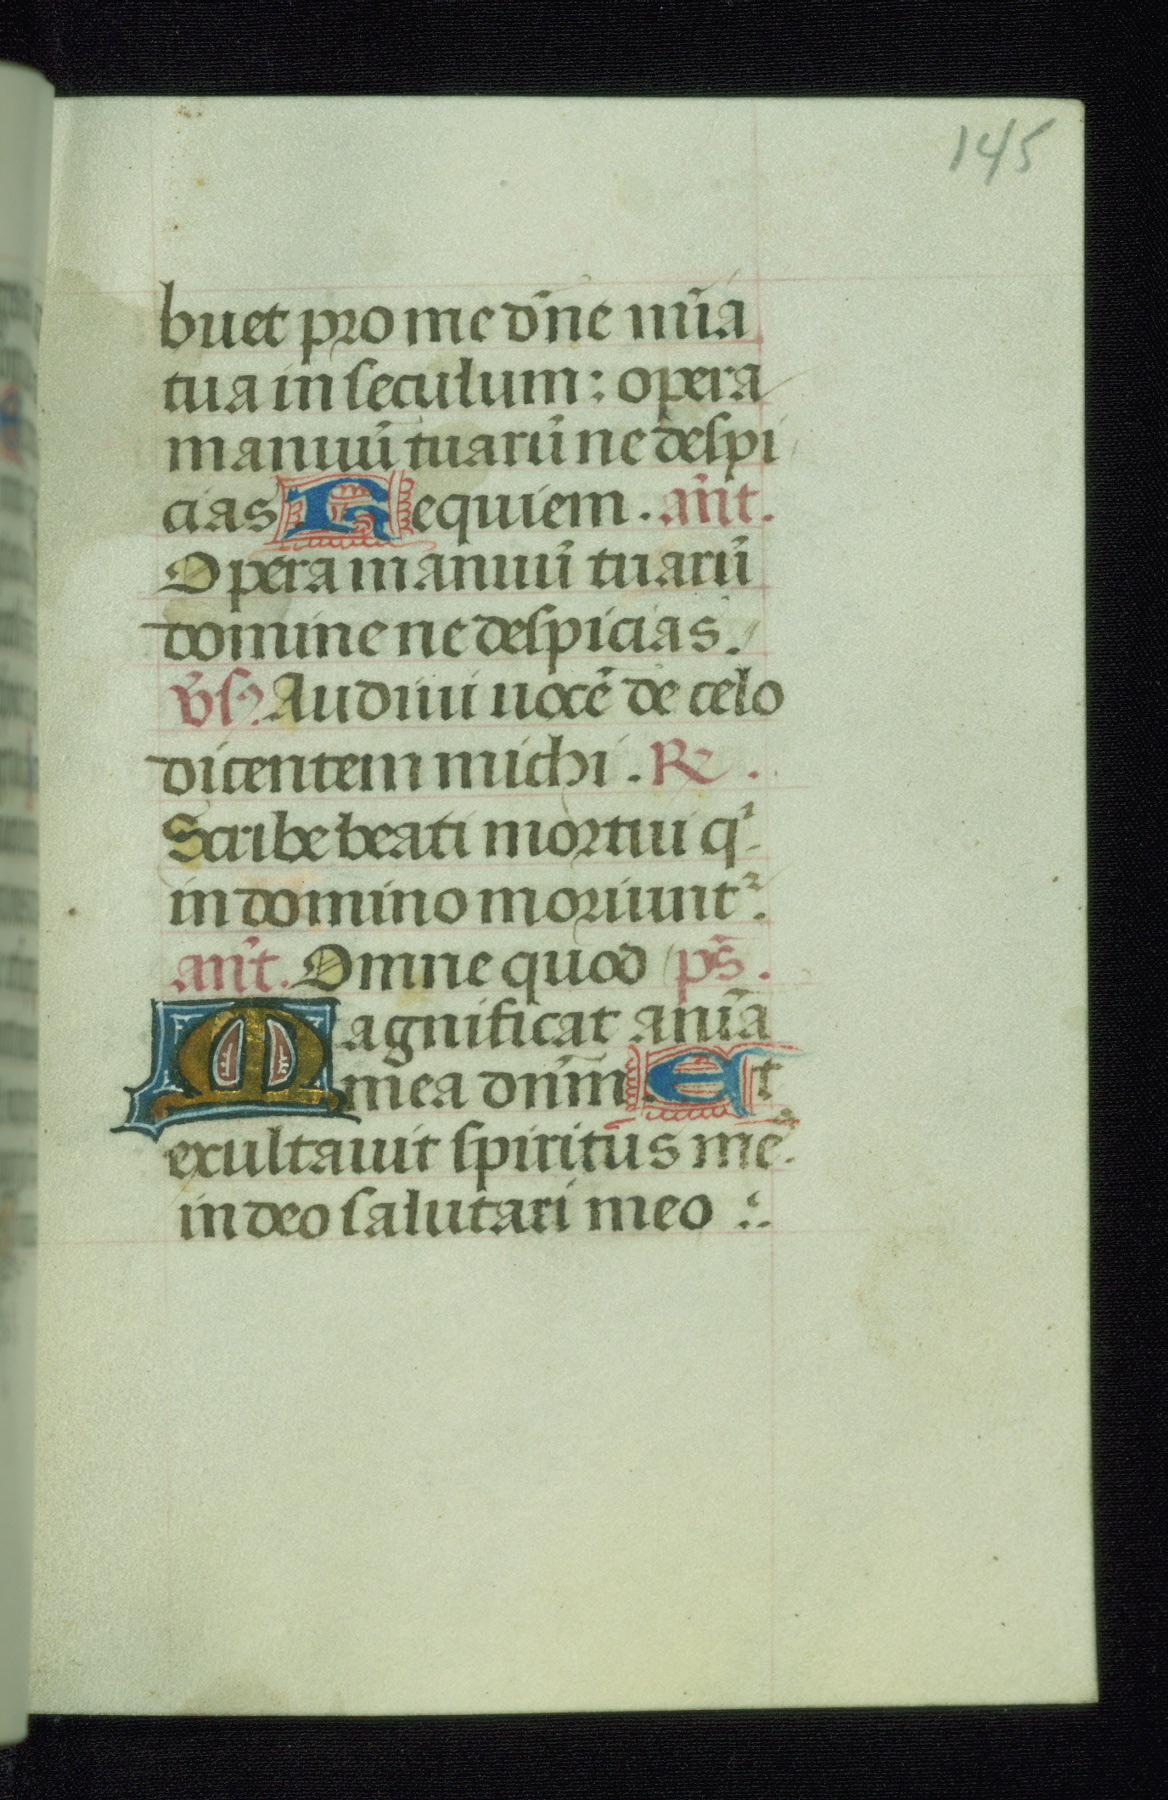 145
buet pro me dn̄e mīa
tua in seculum: opera
manuū tuarū ne despi
cias Requiem. an̄t.
Opera manuū tuarū
domine ne despicias.
v̄s. Audiui uocē de celo
dicentem michi. R̃.
Scribe beati mortui qⁱ
in domino moriunt᷑.
an̄t. Omne quod ps̄.
Magnificat anīa
mea dn̄m. Et
exultauit spiritus me᷒
in deo salutari meo :.